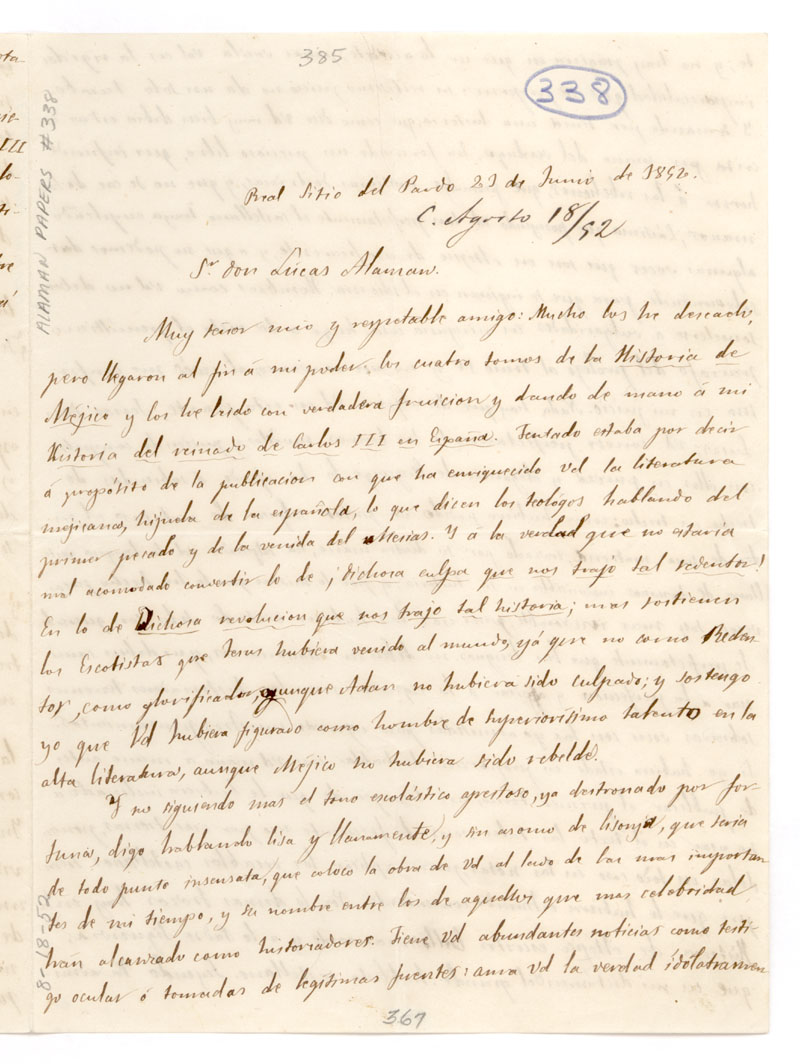 385
338
ALAMAN PAPERS #338
Real Sitio del Pardo 23 de Junio de 1852.
C. Agosto 18/52
Sr. don Lúcas Alaman.
Muy señor mio y respetable amigo: Mucho los he deseado,
pero llegaron al fin á mi poder los cuatro tomos de la Historia de
Méjico y los he leido con verdadera fruicion y dando de mano á mi
Historia del reinado de Carlos III en España. Tentado estaba por decir
á propósito de la publicacion con que ha enriquecido vd la literatura
mejicana, hijuela de la española, lo que dicen los teólogos hablando del
primer pecado y de la venida del Mesias. Y á la verdad que no estaria
mal acomodado convertir lo de ¡dichosa culpa que nos trajo tal redentor!
En lo de Dichosa revolucion que nos trajo tal historia; mas sostienen
los Escotistas que Jesus hubiera venido al mundo, yá que no como Reden-
tor, como glorificador, aunque Adan no hubiera sido culpado; y sostengo
yo que Vd hubiera figurado como hombre de superiorísimo talento en la
alta literatura, aunque Méjico no hubiera sido rebelde.
Y no siguiendo mas el tono escolástico apestoso, ya destronado por for-
tuna, digo hablando lisa y llanamente, y sin asomo de lisonja, que seria
de todo punto insensata, que coloco la obra de Vd al lado de las mas importan
tes de mi tiempo, y su nombre entre los de aquellos que mas celebridad
han alcanzado como historiadores. Tiene Vd abundantes noticias como testi-
go ocular ó tomadas de legítimas fuentes: ama Vd la verdad idolatramen
8-18-52
367